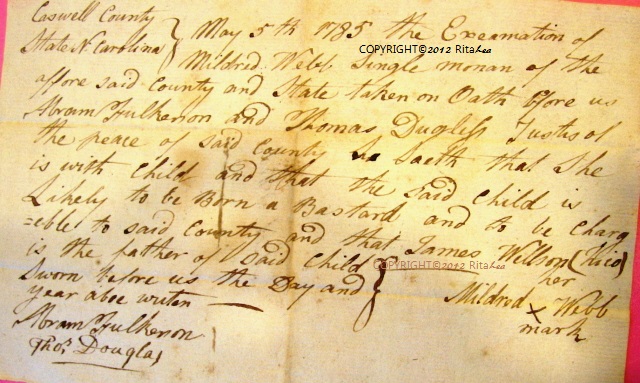 Caswell County
State N. Carolina } May 5th 1785 the Exeamation of
COPYRIGHT©2012 RitaLea
Mildred Webb Single monan of the
affore said County and State taken on Oath bfore us
Abram Fulkenon and Thomas Dugless Justis of
the peace of said County saeth that She
is with Child and that the said Child is
Likely to be Born a Bastard and to be Charg
=eble to said County and that James Willson
is the father of said Child
COPYRIGHT©2012 RitaLea
Sworn before us the Day and } her
year aboe writen Mildred x Webb
mark
Abram Fulkenon
Thos. Douglas